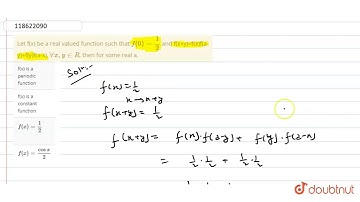 118622090
Let f(x) be a real valued function such that f(0) = 1/2 and f(x+y)=f(x)f(a-
y)+f(y)f(a-x), ∀x, y ∈ R, then for some real a,
f(x) is a
periodic
function
f(x) is a
constant
function
f(x) = 1/2
f(x) = cos x / 2
Solⁿ:-
f(x) = 1/2
x → x+y
f(x+y) = 1/2
f(x+y) = f(x)·f(a-y) + f(y)·f(a-x)
= 1/2 · 1/2 + 1/2 · 1/2
doubtnut